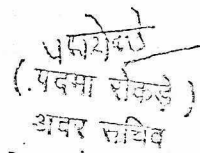 (पदमा रोकडे)
अवर सचिव